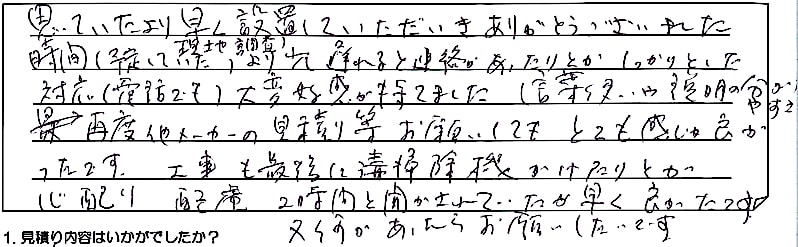 思っていたより早く設置していただいきありがとうございました
時間(予定していた現地調査)より 遅れると連絡があったりとかしっかりとした
対応(電話でも)大変好感が持てました(言葉使いや説明の
再度他メーカーの見積り等お願いしてもとても感じが良か
ったです。工事も最後に清掃除機がけたりとか
心配り 配慮 2時間と聞かされていたが早く良かったです
又何かあったらお願いしたいです
1. 見積り内容はいかがでしたか？